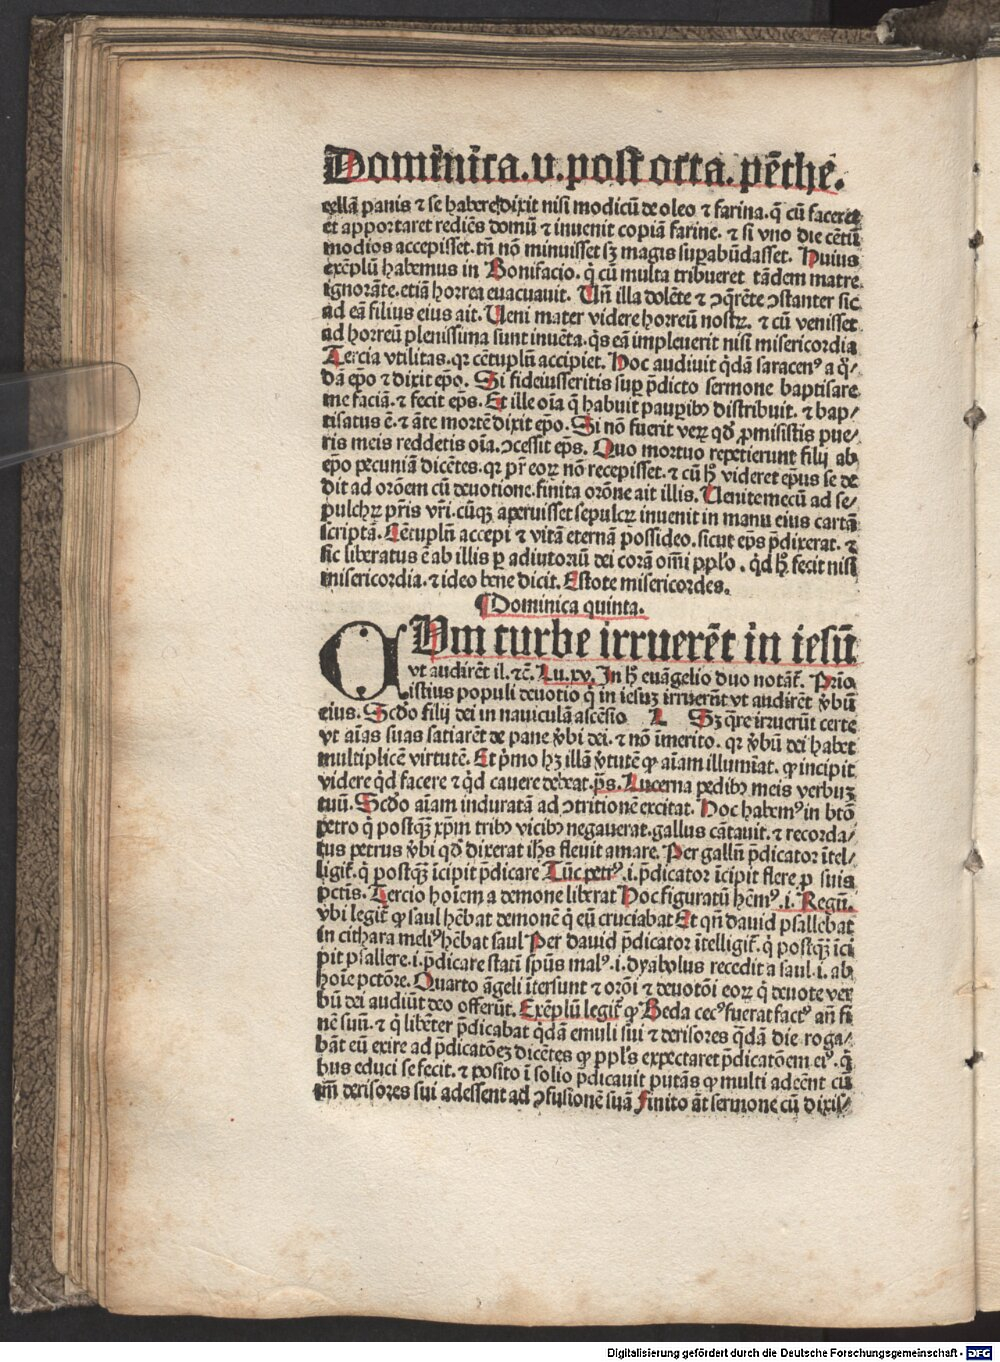 Dominica.v.post octa.pēthe.
cellā panis ⁊ se habere dixit nisi modicū de oleo ⁊ farina.q̄ cū faceret
et apportaret rediēs domū ⁊ invenit copiā farine. ⁊ si vno die cētū
modios accepisset.tn̄ nō minuisset sꝫ magis suꝑabūdasset. Huius
exēplū habemus in Bonifacio. q̇ cū multa tribueret tādem matre
ignorāte.etiā horrea euacuauit. Un̄ illa dolēte ⁊ ↄq̄rēte ↄstanter sic
ad eā filius eius ait. Ueni mater videre horreū nostꝝ. ⁊ cū venisset
ad horreū plenissima sunt inuēta.q̄s eā impleuerit nisi misericordia
Tercia vtilitas.qꝛ cētuplū accipiet. Hoc audiuit q̇dā saracenꝰ a q̇⸗
dā ep̄o ⁊ dixit ep̄o. Si fideiusseritis suꝑ p̄dicto sermone baptisare
me faciā.⁊ fecit ep̄s. Et ille oīa q̄ habuit pauꝑibꝰ distribuit. ⁊ bap⸗
tisatus ē. ⁊ āte mortē dixit ep̄o. Si nō fuerit veꝝ qd̄ ꝓmisistis pue⸗
ris meis reddetis oīa.ↄcessit ep̄s. Quo mortuo repetierunt filij ab
ep̄o pecuniā dicētes.qꝛ pr̄ eoꝝ nō recepisset.⁊ cū hꝫ videret ep̄us se de
dit ad orōem cū deuotione.finita orōne ait illis. Uenite mecū ad se⸗
pulchꝝ pr̄is vr̄i.cūqꝫ aperuisset sepulcꝝ inuenit in manu eius cartā
scriptā. Cētuplū accepi ⁊ vitā eternā possideo.sicut ep̄s p̄dixerat. ⁊
sic liberatus ē ab illis ꝑ adiutoriū dei corā om̄i pplo. qd̄ hꝫ fecit nisi
misericordia.⁊ ideo bene dicit. Estote misericordes.
¶Dominica quinta.
CUm turbe irruerēt in iesū
vt audirēt il.⁊c̄. Lu.xv. In hꝫ euāgelio duo notāt̄. Prīo
istius populi deuotio q̇ in iesuꝫ irruerūt vt audirēt v̄bū
eius. Scdo filij dei in nauiculā ascēsio L Sꝫ q̄re irruerūt certe
vt aīas suas satiarēt de pane v̄bi dei. ⁊ nō īmerito. qꝛ v̄bū dei habet
multiplicē virtutē. Et p̄mo hꝫ illā v̄tutē ꝙ aīam illumīat. ꝙ incipit
videre q̇d facere ⁊ q̇d cauere debeat.p̄s. Lucerna pedibꝰ meis verbuꝫ
tuū. Scdo aīam induratā ad ↄtritionē excitat. Hoc habemꝰ in btō
petro q̇ postqꝫ xp̄m tribꝰ vicibꝰ negauerat.gallus cātauit.⁊ recorda⸗
tus petrus v̄bi qd̄ dixerat ihs fleuit amare. Per gallū p̄dicator ītel⸗
ligit̄.q̇ postqꝫ īcipit p̄dicare Tūc petrꝰ.i.p̄dicator īcipit flere ꝓ suis
pctis. Tercio hoīem a demone liberat Hoc figuratū hēmꝰ.i. Regū.
v̄bi legit̄ ꝙ saul hēbat demonē q̇ eū cruciabat Et qn̄ dauid psallebat
in cithara meliꝰ hēbat saul Per dauid p̄dicator ītelligit̄.q̇ postqꝫ īci
pit psallere.i.p̄dicare statī sp̄us malꝰ.i.dyabolus recedit a saul.i. ab
hoīe pctōre. Quarto āgeli ītersunt ⁊ orōi ⁊ deuotōi eoꝝ q̇ deuote ver
bū dei audiūt deo offerūt. Exēplū legit̄ ꝙ Beda cecꝰ fuerat factꝰ an̄ fi
nē suū.⁊ q̇ libēter p̄dicabat q̇dā emuli sui ⁊ derisores q̄dā die roga⸗
bāt eū exire ad p̄dicatōeꝫ dicētes ꝙ pplꝰs expectaret p̄dicatōem eiꝰ.q̇
bus educi se fecit.⁊ posito ī solio p̄dicauit putās ꝙ multi adeēnt cū
tm̄ derisores sui adessent ad ↄfusionē suā Finito āt sermone cū dixis⸗
Digitalisierung gefördert durch die Deutsche Forschungsgemeinschaft - DFG